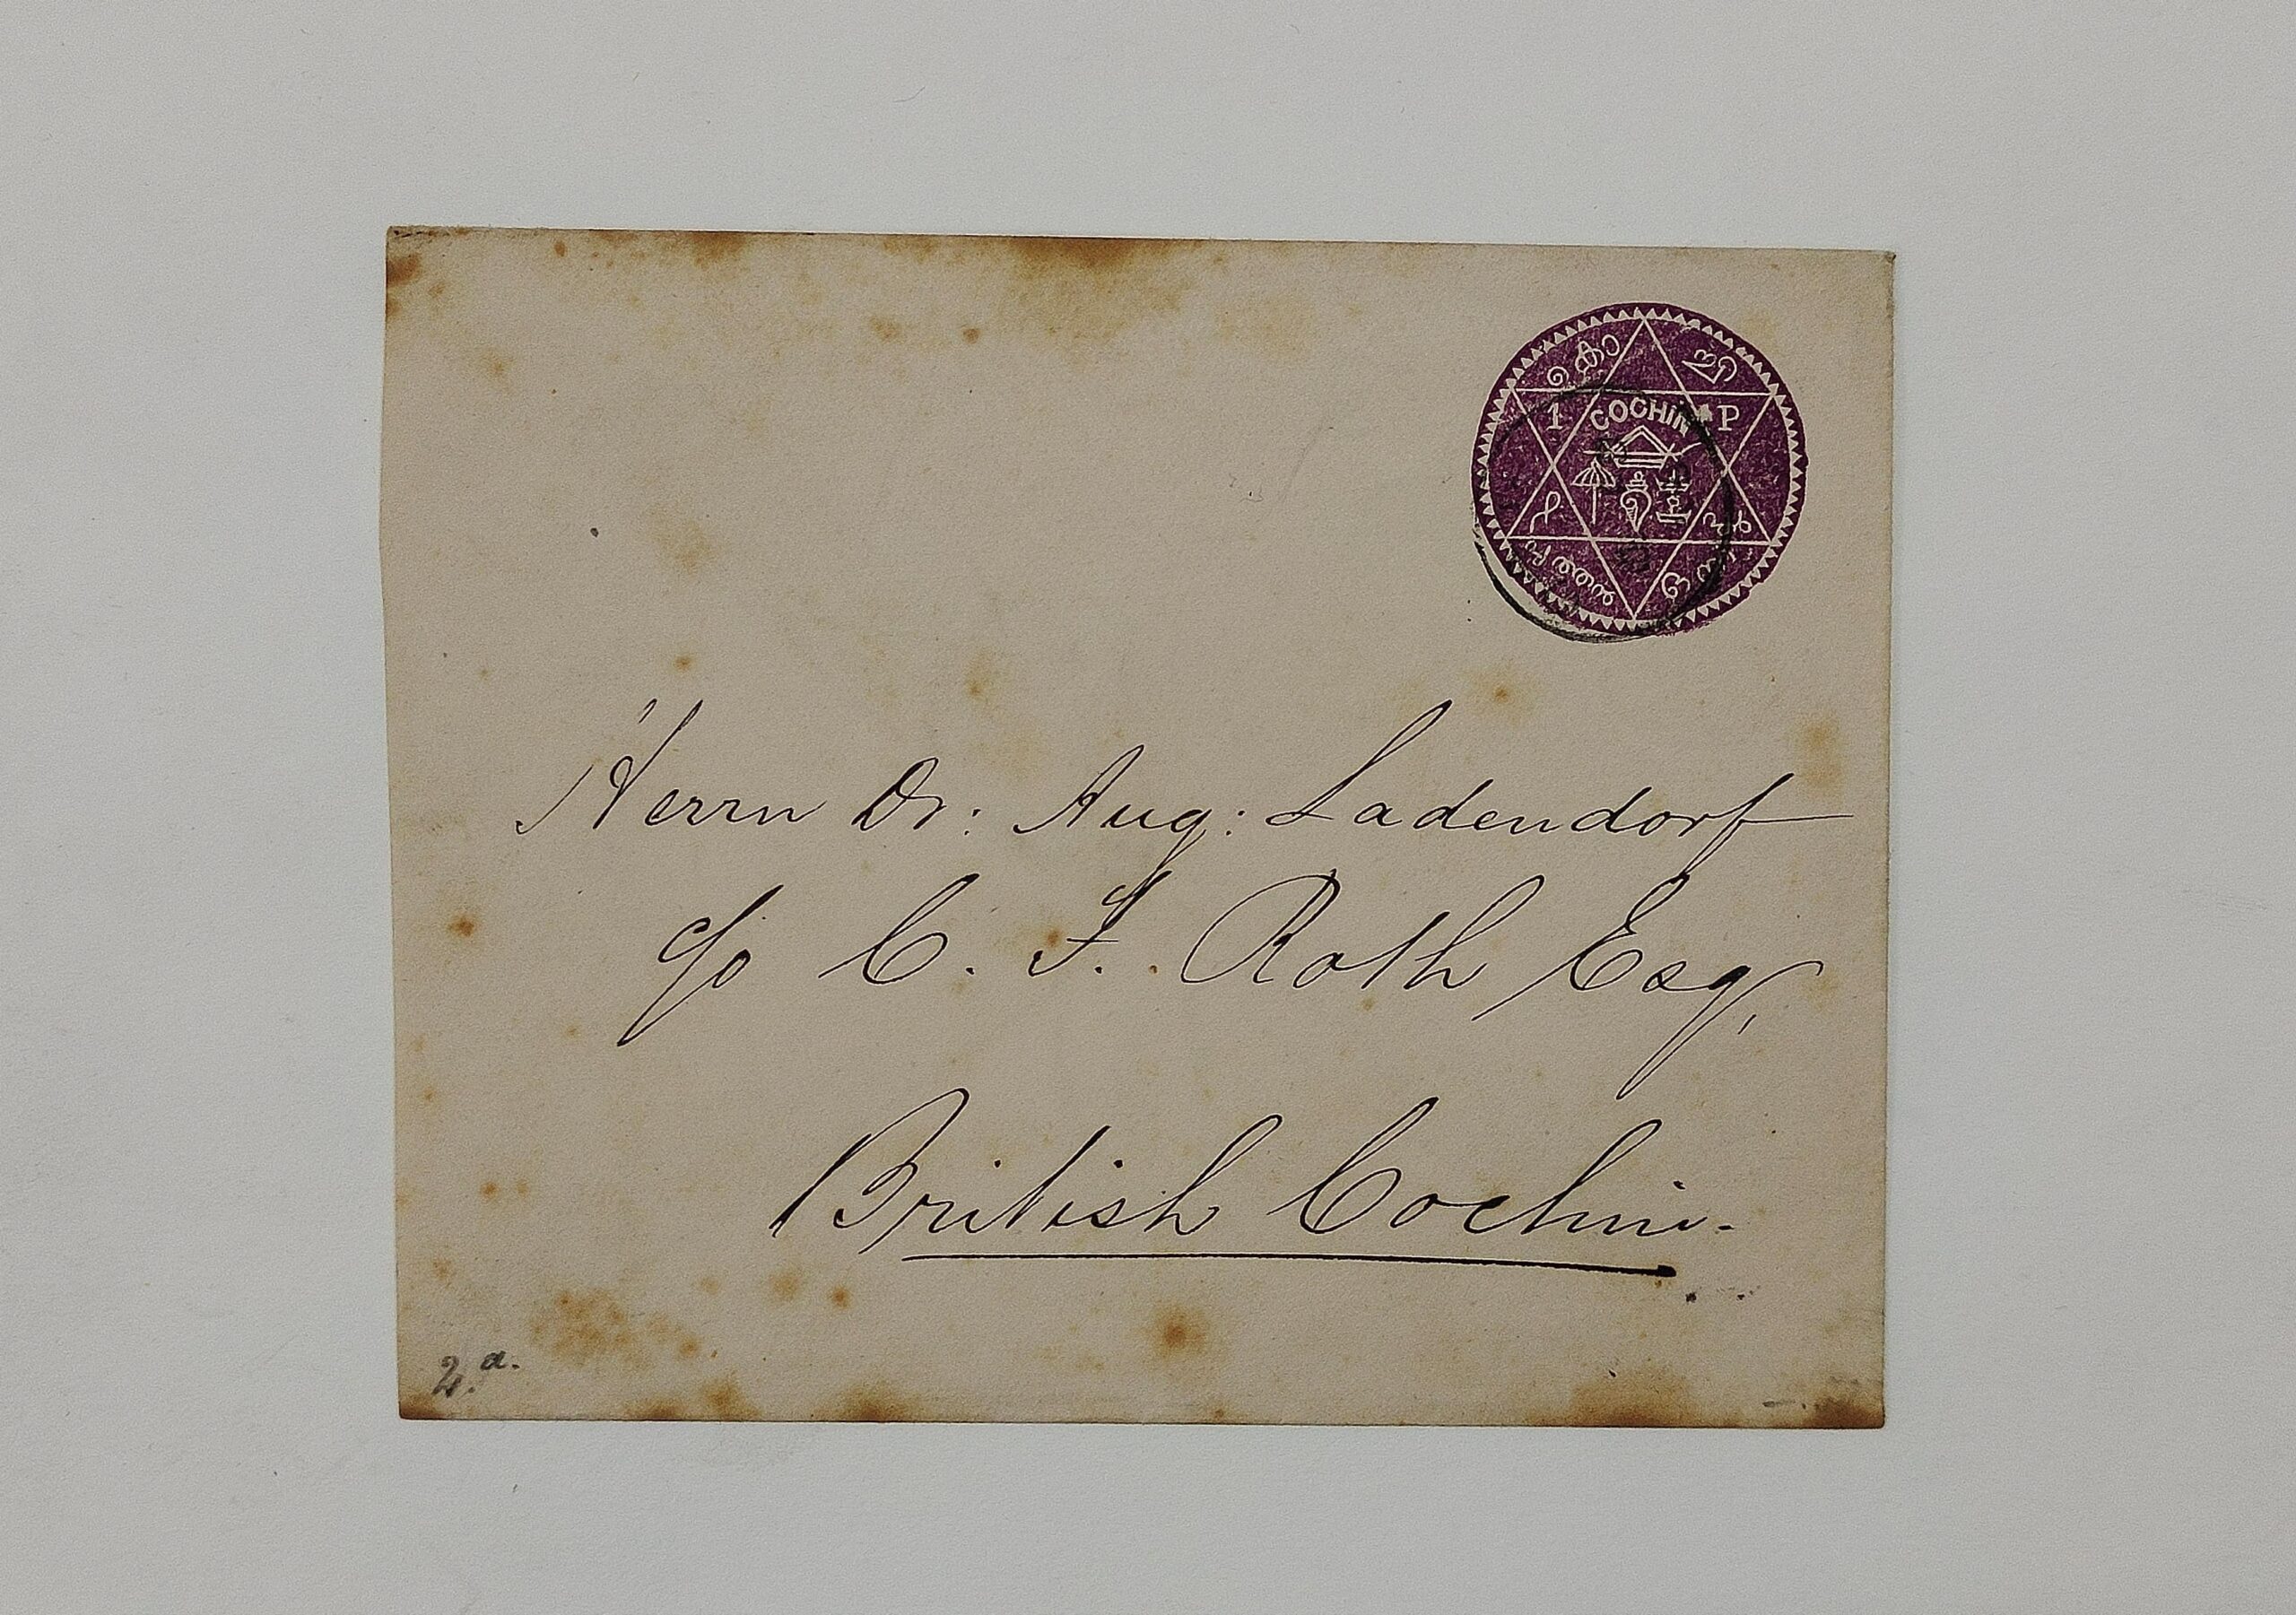 COCHIN
1 P
Herrn Dr: Aug: Ladendorf
c/o C. F. Roth Esq,
British Cochin.
2.a.